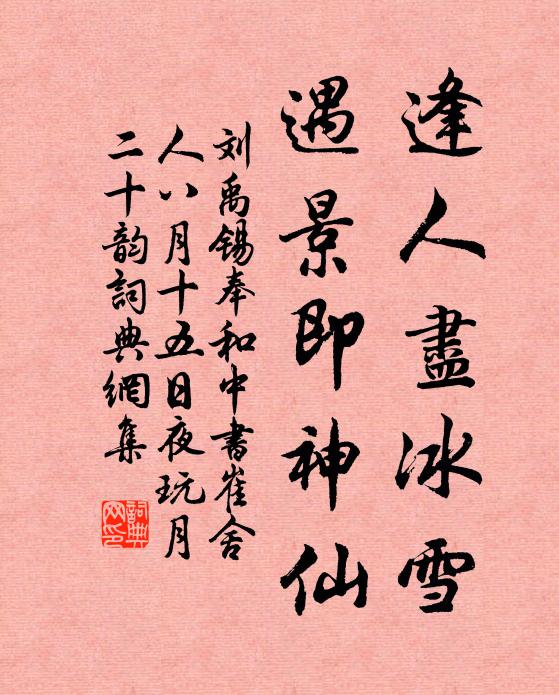 逢人盡冰雪
遇景即神仙
刘禹锡奉和中書崔舍
人八月十五日夜玩月
二十韵詞典網集
詞典网印